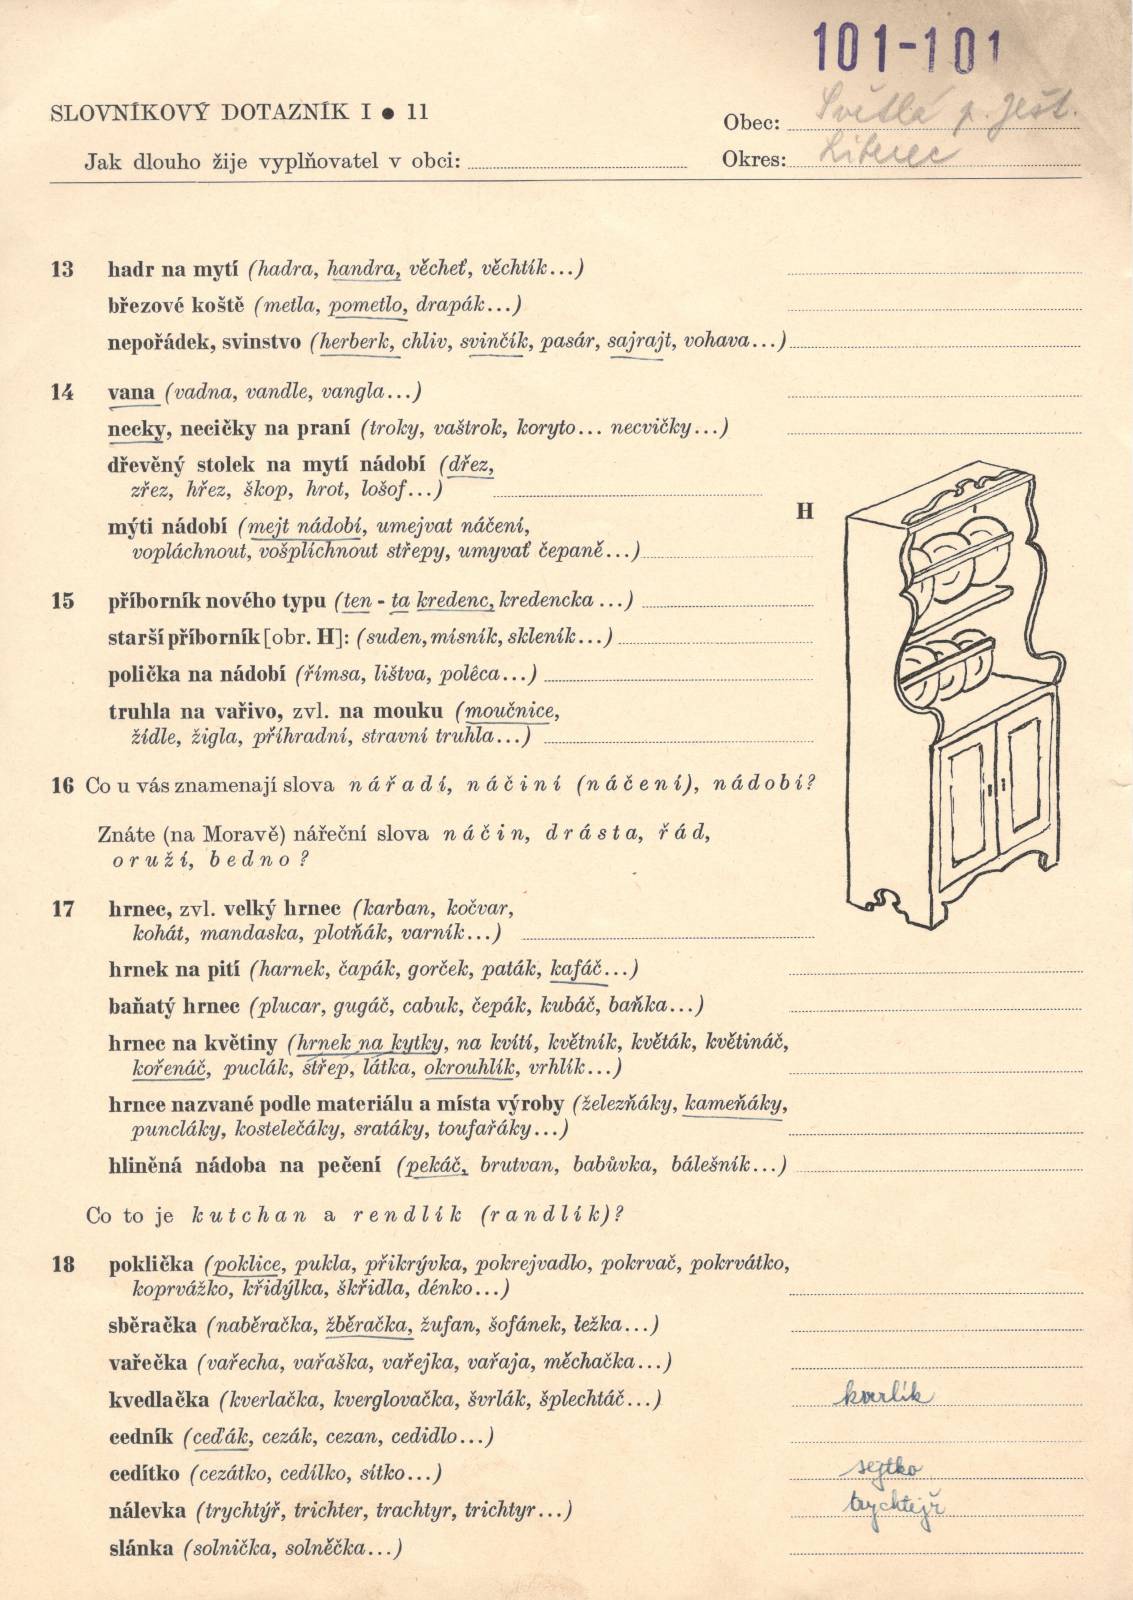 101-101
SLOVNÍKOVÝ DOTAZNÍK I • 11
Obec: Světlá p. Ješt.
Jak dlouho žije vyplňovatel v obci:
Okres: Liberec
13 hadr na mytí (hadra, handra, věcheť, věchtík...)
březové koště (metla, pometlo, drapák...)
nepořádek, svinstvo (herberk, chliv, svinčík, pasár, sajrajt, vohava...)
14 vana (vadna, vandle, vangla...)
necky, necičky na praní (troky, vaštrok, koryto... necvičky...)
dřevěný stolek na mytí nádobí (dřez,
zřez, hřez, škop, hrot, lošof...)
H
mýti nádobí (mejt nádobí, umejvat náčení,
vopláchnout, vošplíchnout střepy, umyvať čepaně...)
15 příborník nového typu (ten - ta kredenc, kredencka ...)
starší příborník [obr. H]: (suden, misník, skleník...)
polička na nádobí (římsa, lištva, polêca...)
truhla na vařivo, zvl. na mouku (moučnice,
židle, žigla, příhradní, stravní truhla...)
16 Co u vás znamenají slova nářadí, náčiní (náčení), nádobí?
Znáte (na Moravě) nářeční slova náčin, drásta, řád,
oruží, bedno?
17 hrnec, zvl. velký hrnec (karban, kočvar,
kohát, mandaska, plotňák, varník...)
hrnek na pití (harnek, čapák, gorček, paták, kafáč...)
baňatý hrnec (plucar, gugáč, cabuk, čepák, kubáč, baňka...)
hrnec na květiny (hrnek na kytky, na kvítí, květník, květák, květináč,
kořenáč, puclák, střep, látka, okrouhlík, vrhlík...)
hrnce nazvané podle materiálu a místa výroby (železňáky, kameňáky,
puncláky, kostelečáky, sratáky, toufařáky...)
hliněná nádoba na pečení (pekáč, brutvan, babůvka, bálešník...)
Co to je kutchan a rendlík (randlík)?
18 poklička (poklice, pukla, přikrývka, pokrejvadlo, pokrvač, pokrvátko,
koprvážko, křidýlka, škřidla, dénko...)
sběračka (naběračka, žběračka, žufan, šofánek, łežka...)
vařečka (vařecha, vařaška, vařejka, vařaja, měchačka...)
kvedlačka (kverlačka, kverglovačka, švrlák, šplechtáč...) kvrlík
cedník (ceďák, cezák, cezan, cedidlo...)
cedítko (cezátko, cedílko, sítko...) sejtko
nálevka (trychtýř, trichter, trachtyr, trichtyr...) trychtejř
slánka (solnička, solněčka...)